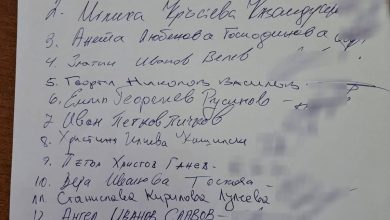 2. Илияна Кръстева
3. Анета Любенова Господинова
4. Златин Иванов Велев
5. Георги Николов Василев
6. Емил Георгиев Русинов -
7 Иван Петков Пичков
8. Христина Илиева
9. Петър Христов Ганев -
10. Иванова Тоскова -
11. Станислава Кирилова
12. Ангел Иванов Славов -